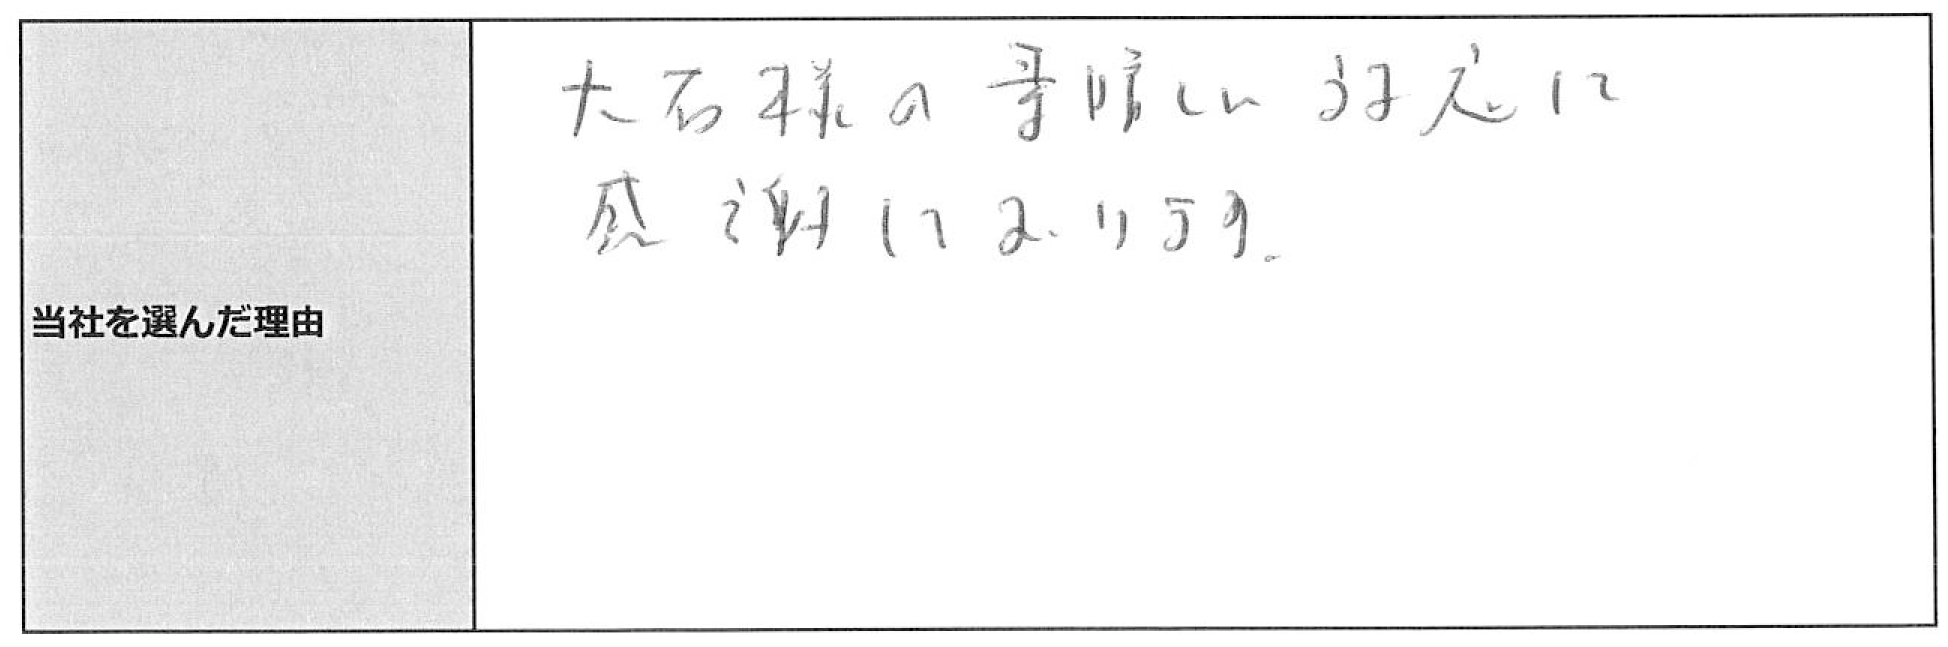 大石様の素晴しい対応に
感謝しております。
当社を選んだ理由